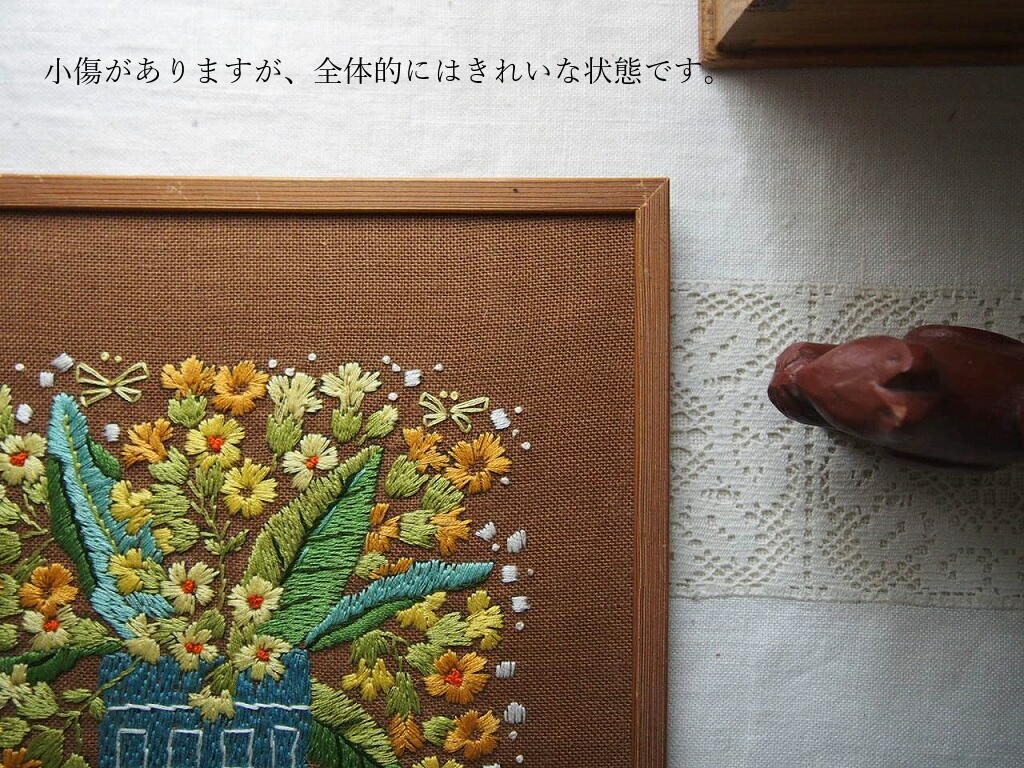 小傷がありますが、全体的にはきれいな状態です。